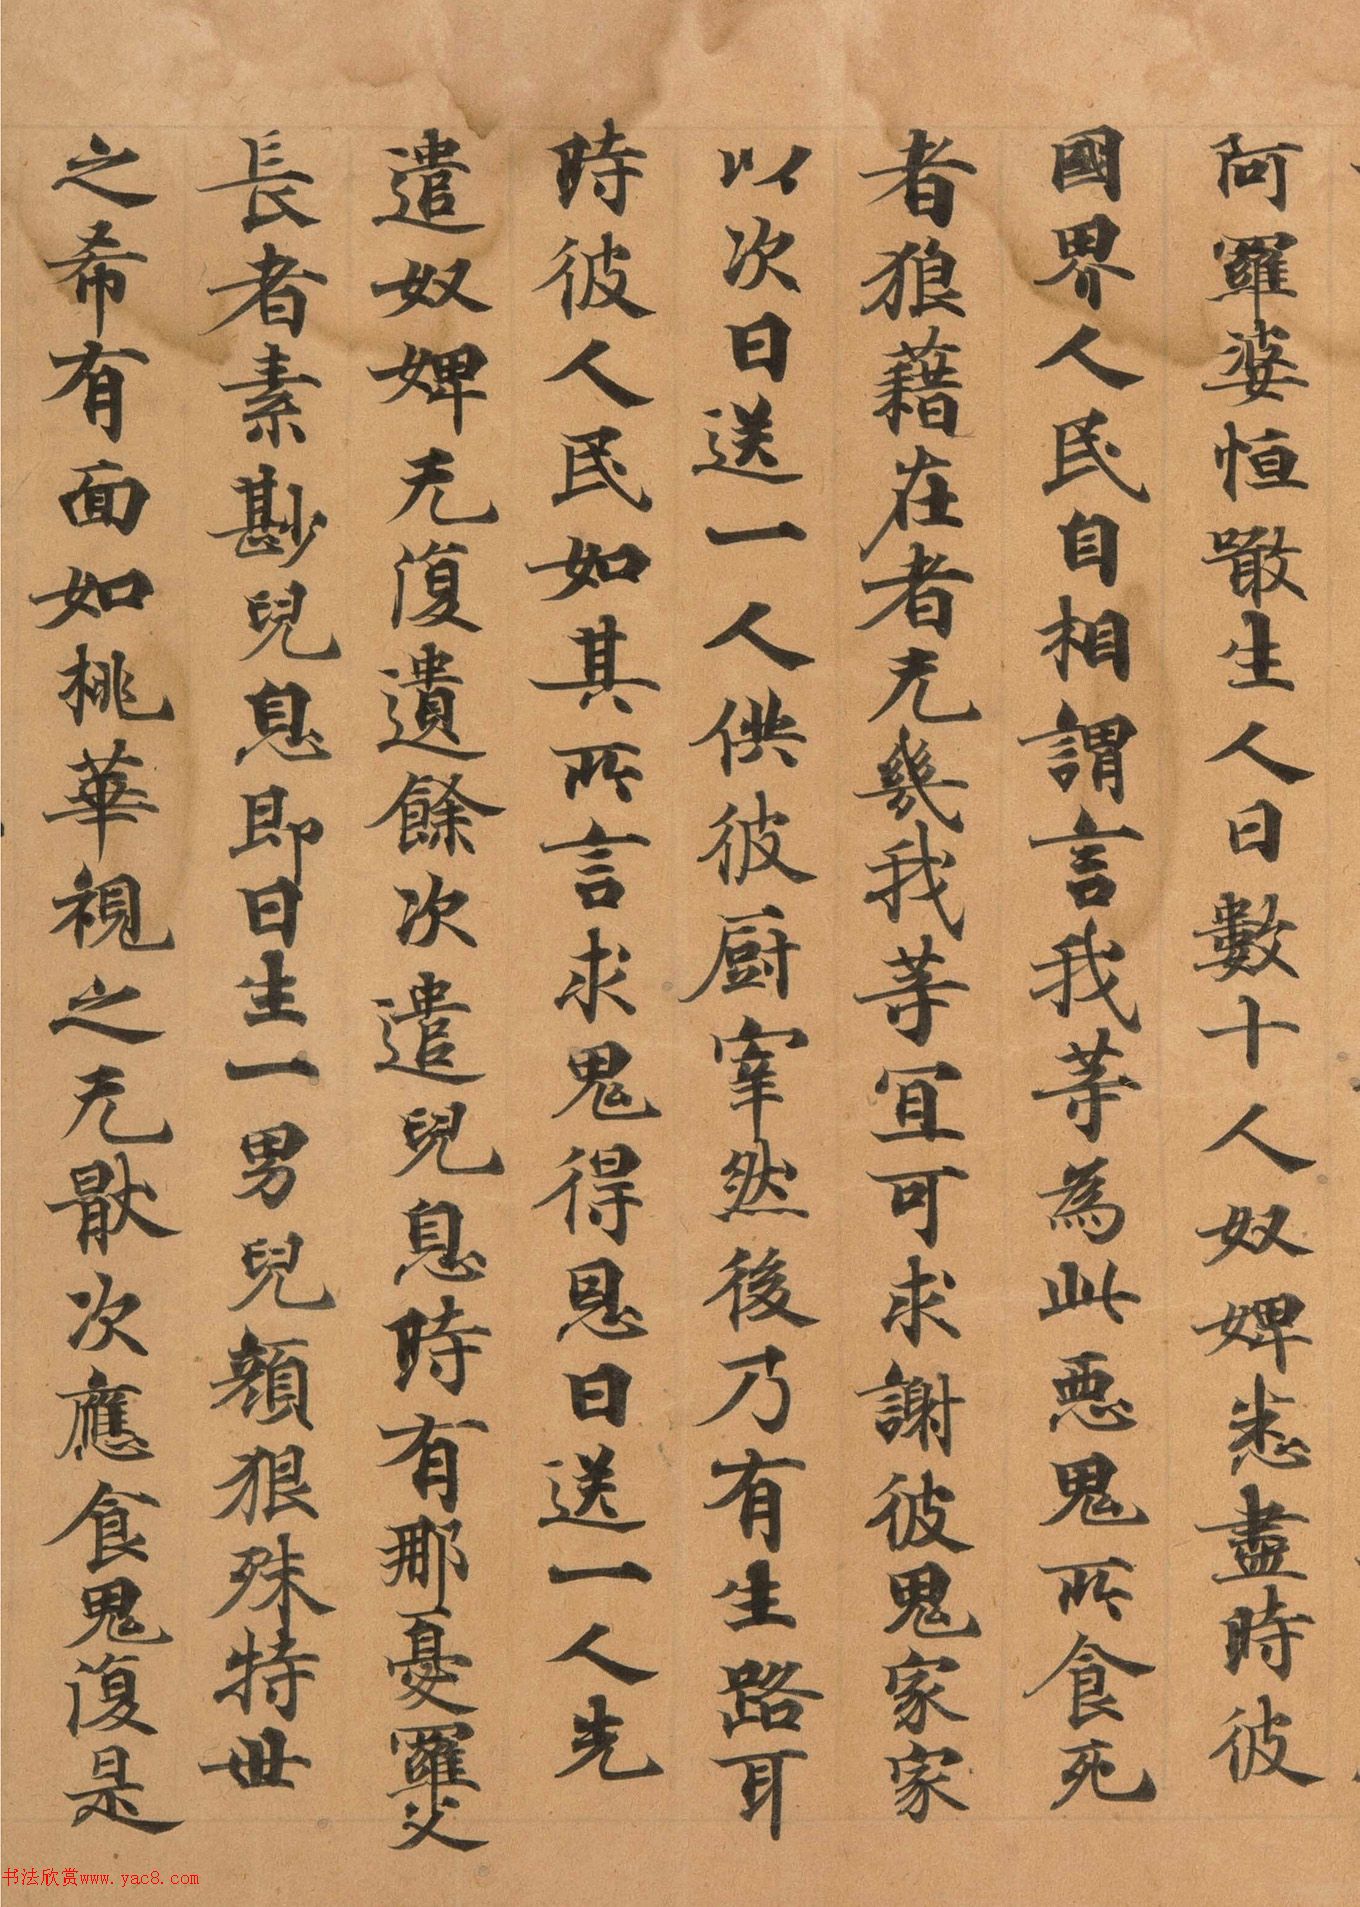 阿羅婆恒噉生人日數十人奴婢悉盡時彼
國界人民自相謂言我等為此惡鬼所食死
者狼藉在者无幾我等宜可求謝彼鬼家家
以次日送一人供彼厨宰然後乃有生路耳
時彼人民如其所言求鬼得恩日送一人先
遣奴婢无復遺餘次遣兒息時有那憂羅父
長者素尠兒息即日生一男兒顏狠殊特世
之希有面如桃華視之无猒次應食鬼復是
书法欣赏www.yac8.com